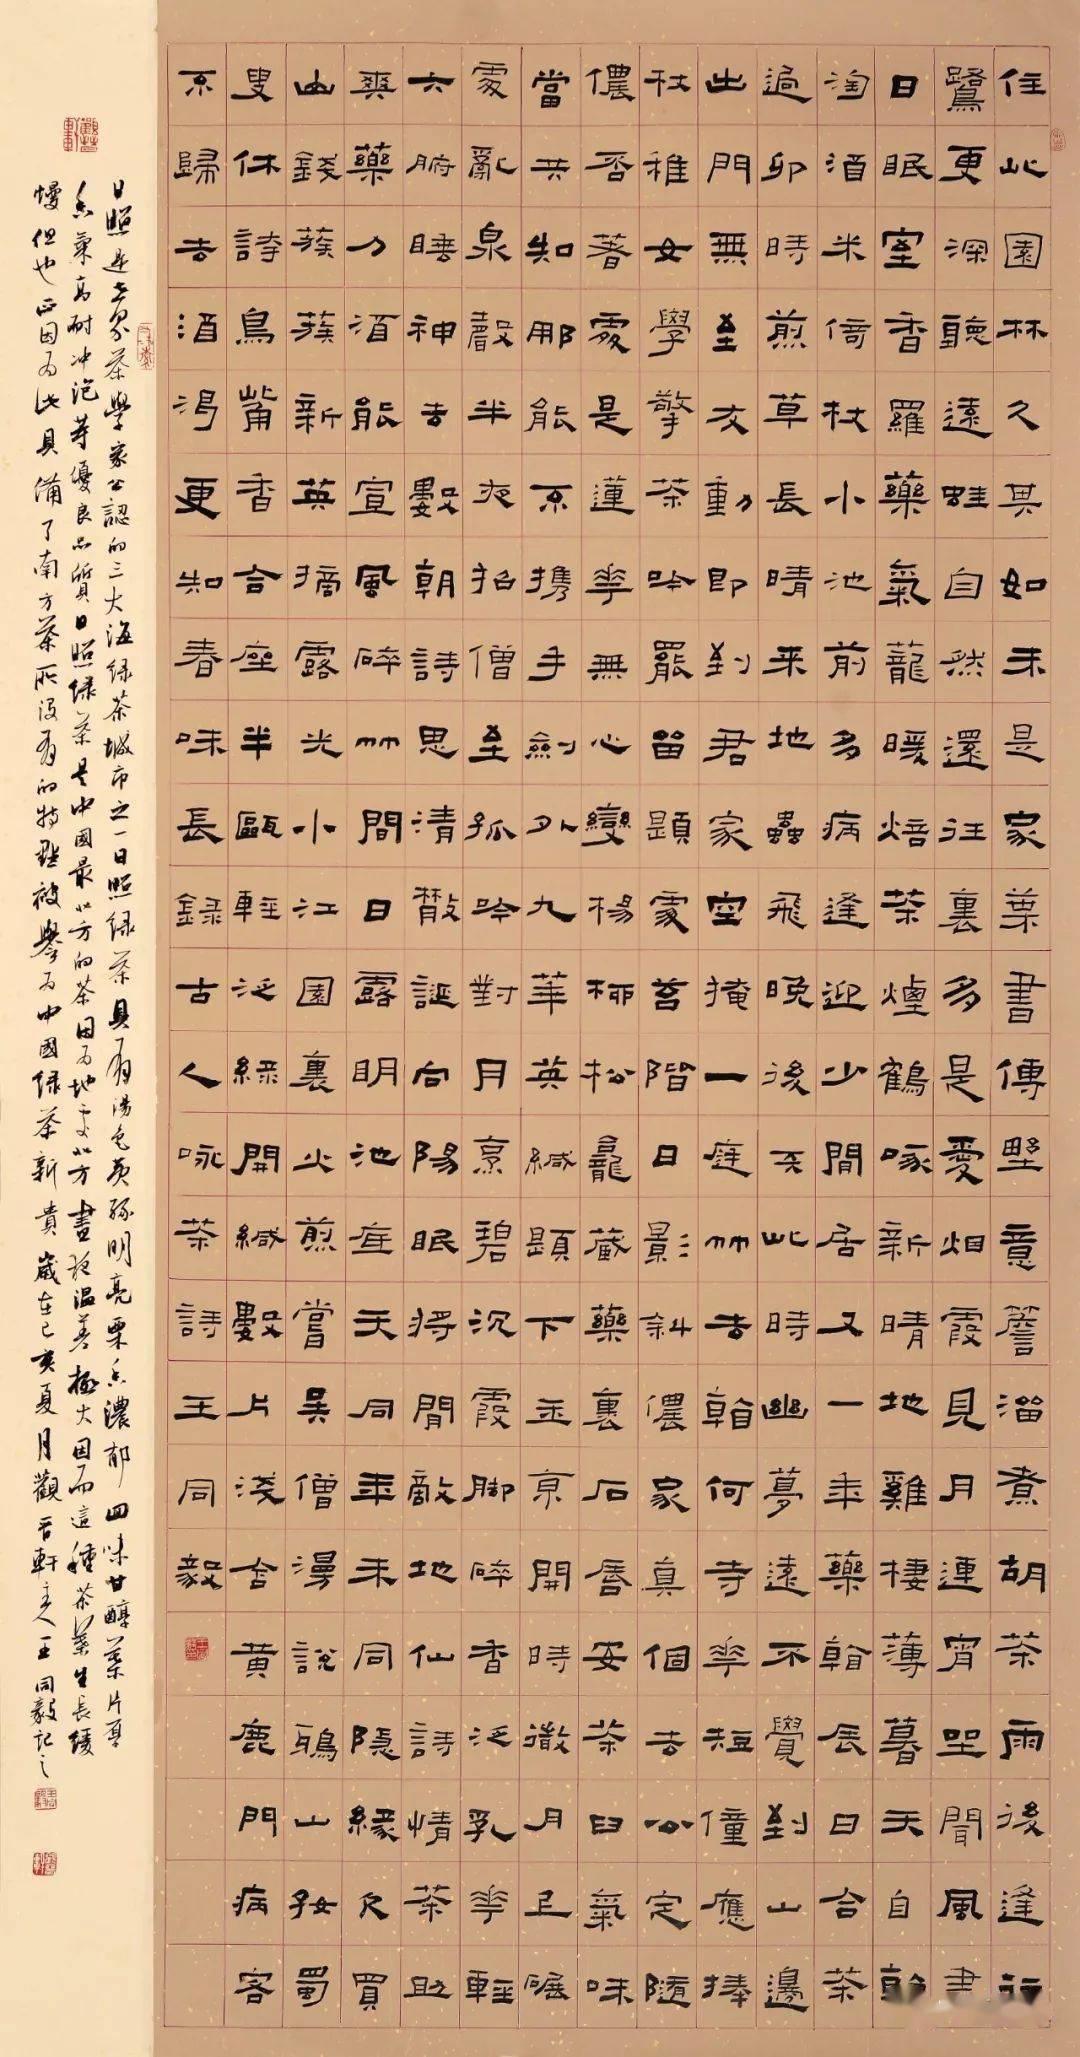 住此園林久其如未是家葉書傳野意簷溜煮胡茶雨後逢行
鷺更深聽遠蛙自然還往裏多是愛烟霞見月連宵坐聞風盡
日眠室香羅藥氣蘢暖焙茶煙鶴啄新晴地雞棲薄暮天自看
淘酒米倚杖小池前多病逢迎少閒居又一年藥看辰日合茶
過卯時煎草長晴来地蟲飛晚後天此時幽夢遠不覺到山邊
出門無至友動即到君家空掩一庭竹去看何寺花短僮應捧
杖稚女學擎茶吟罷留題處苔階日影斜儂家真個去公定隨
儂否著處是蓮花無心變楊柳松龕藏藥裏石唇安茶臼氣味
當共知那能不攜手劍外九華英緘題下玉京開時微月上碾
處亂泉聲半夜招僧至孤吟對月烹碧沉霞腳碎香泛乳花輕
六腑睡神去數朝詩思清散誕向陽眠將閒敵地仙詩情茶助
爽藥力酒能宣風碎竹間日露明池底天同年未同隱緣欠買
山錢蔟蔟新英摘露光小江園裏火煎嘗吳僧漫說鴉山好蜀
叟休誇鳥觜香合座半甌輕泛綠開緘數片淺含黃鹿門病客
不歸去酒渴更知春味長錄古人咏茶詩王同毅
日照是世界茶學家公認的三大海綠茶城市之一日照綠茶具有湯色黃綠明亮栗香濃郁回味甘醇葉片厚
香氣高耐沖泡等優良品質日照綠茶是中國最北方的茶因為地處北方晝夜溫差極大因而這種茶葉生長緩
慢但也正因為此具備了南方茶所沒有的特點被譽為中國綠茶新貴歲在己亥夏月觀晉軒主人王同毅記之